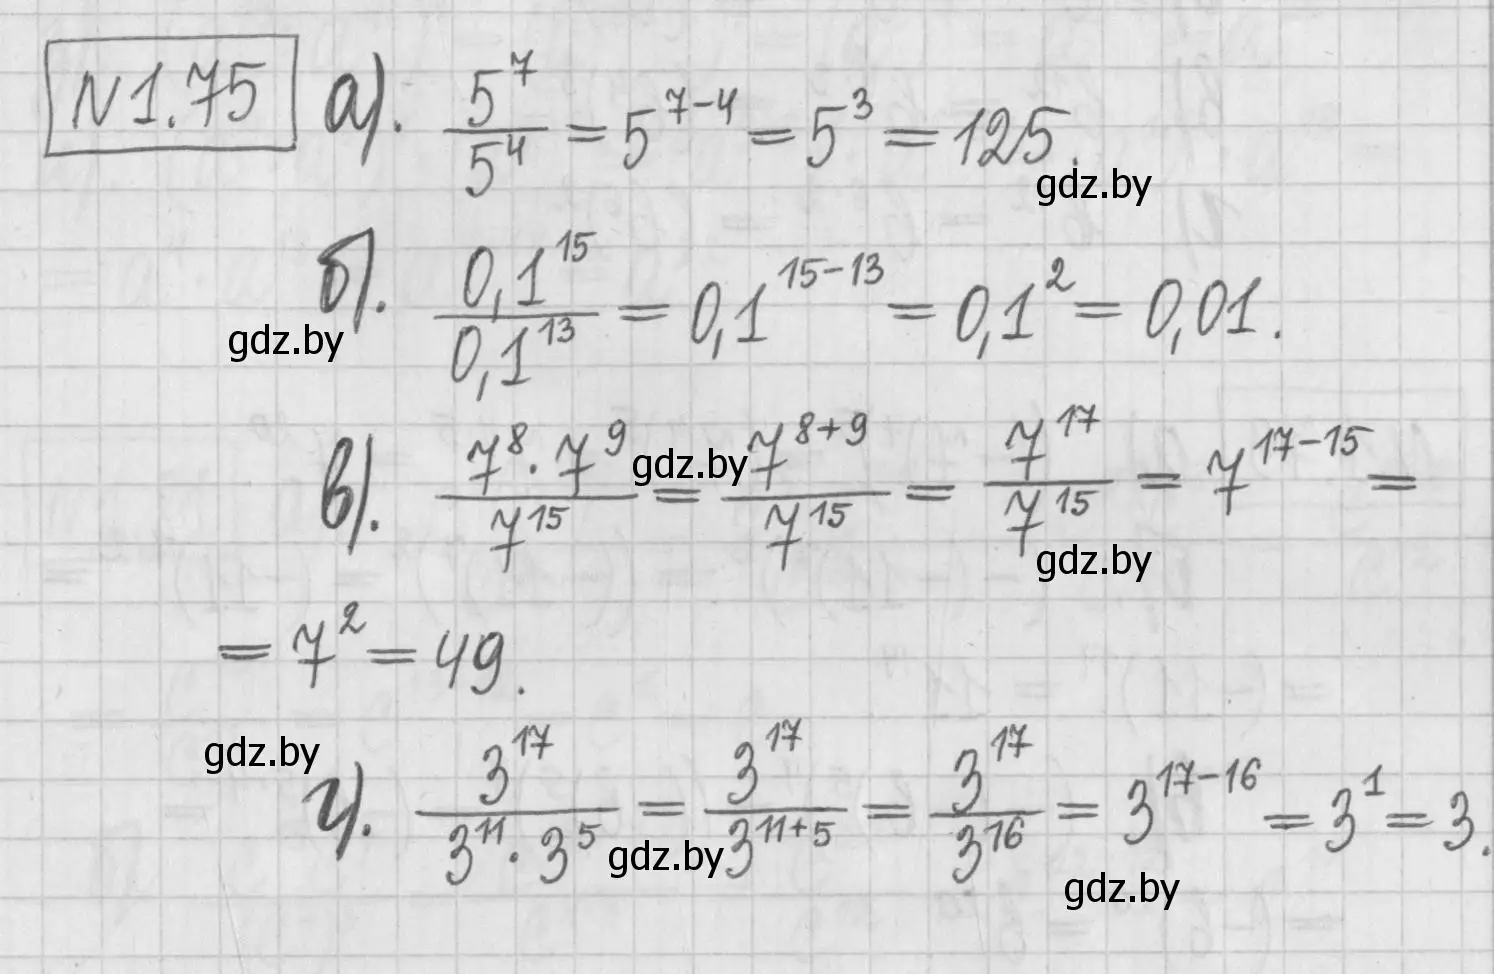 N 1.75 а). 5^7/5^4 = 5^(7-4) = 5^3 = 125.
gdz.by
б). 0,1^15/0,1^13 = 0,1^(15-13) = 0,1^2 = 0,01.
gdz.by
в). (7^8 · 7^9)/7^15 = 7^(8+9)/7^15 = 7^17/7^15 = 7^(17-15) =
gdz.by
gdz.by
= 7^2 = 49.
gdz.by
г). 3^17/(3^11 · 3^5) = 3^17/3^(11+5) = 3^17/3^16 = 3^(17-16) = 3^1 = 3.
gdz.by
gdz.by